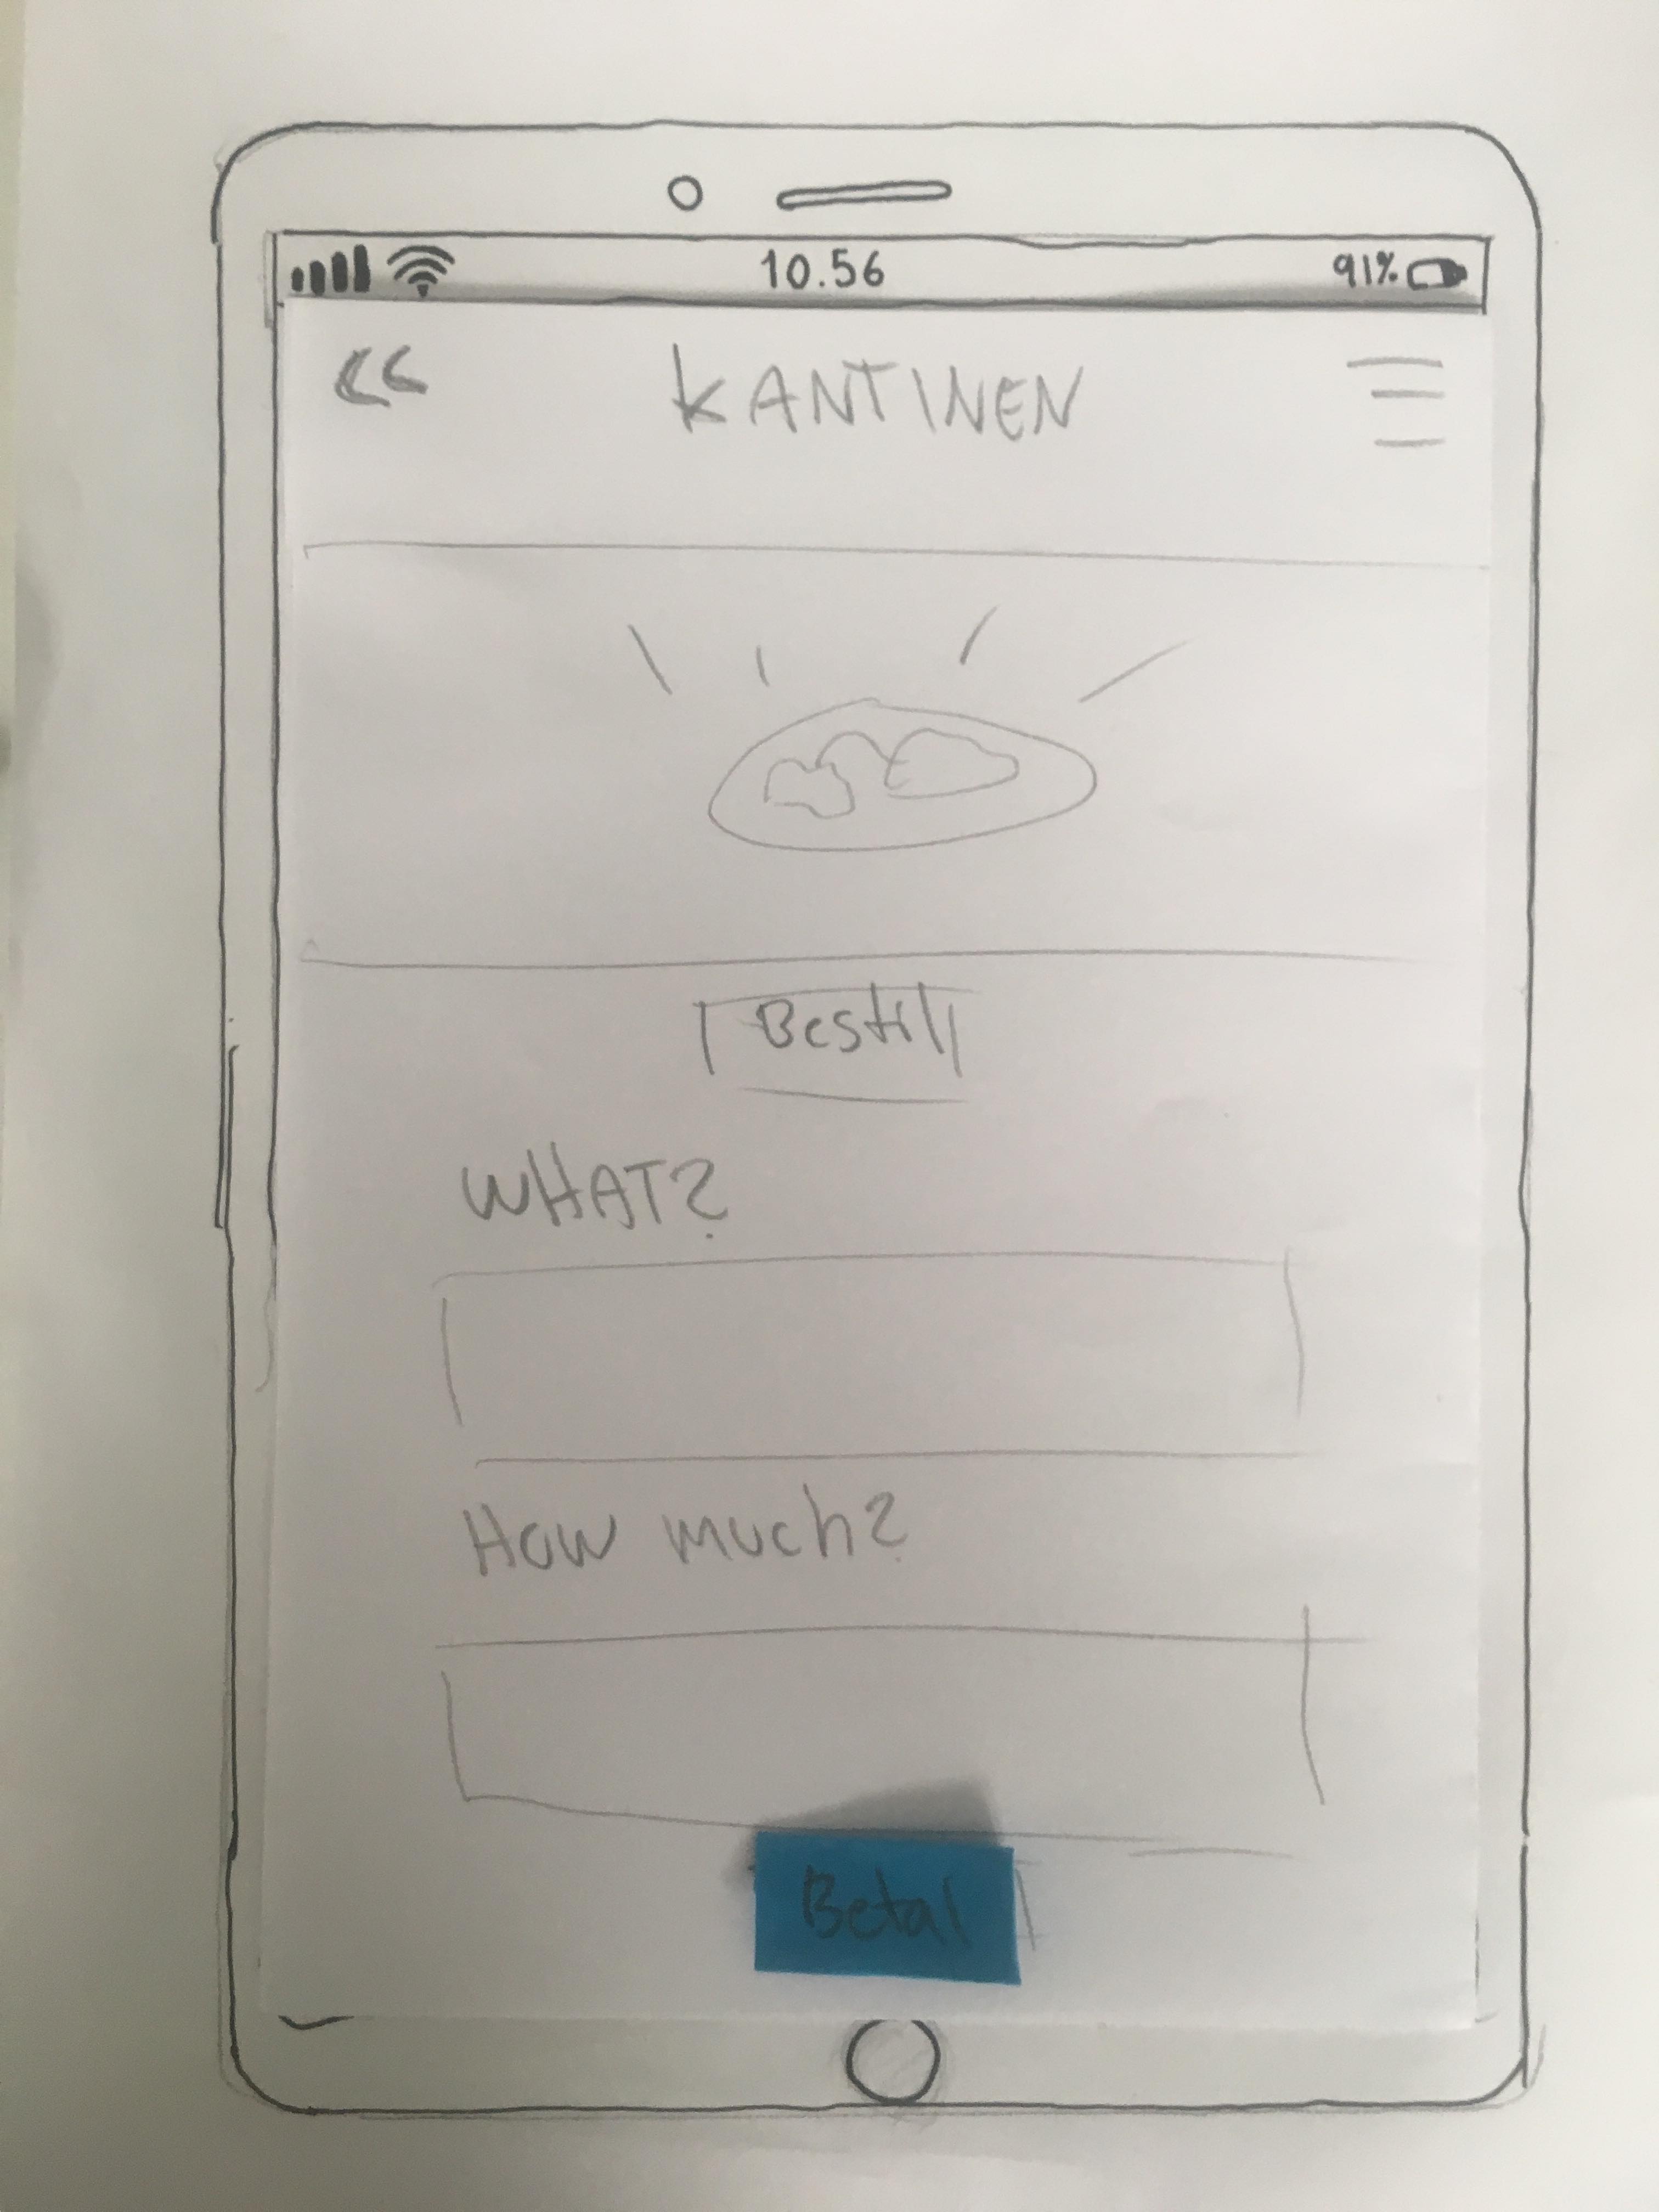 10.56 91%
KANTINEN
Bestil
WHAT?
How much?
Betal